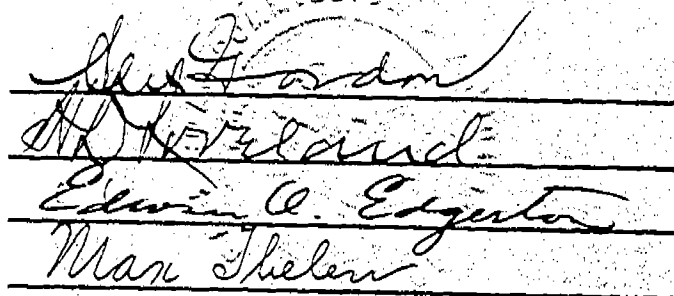 Alex Gordon
H. D. Loveland
Edwin O. Edgerton
Max Thelen